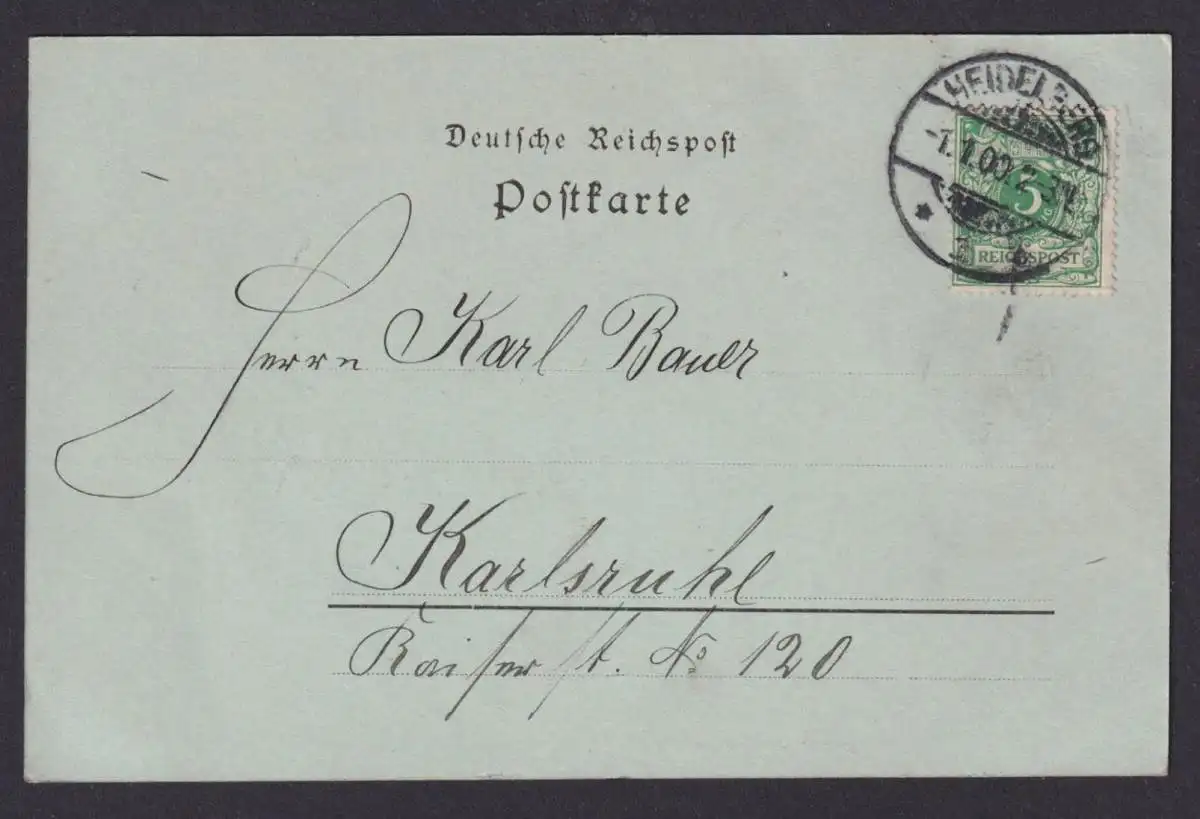 Deutsche Reichspost
Postkarte
HEIDELBERG
-7.1.00.2-3N.
5
REICHSPOST
Herrn Karl Bauer
Karlsruhe
Kaiser st. No 120